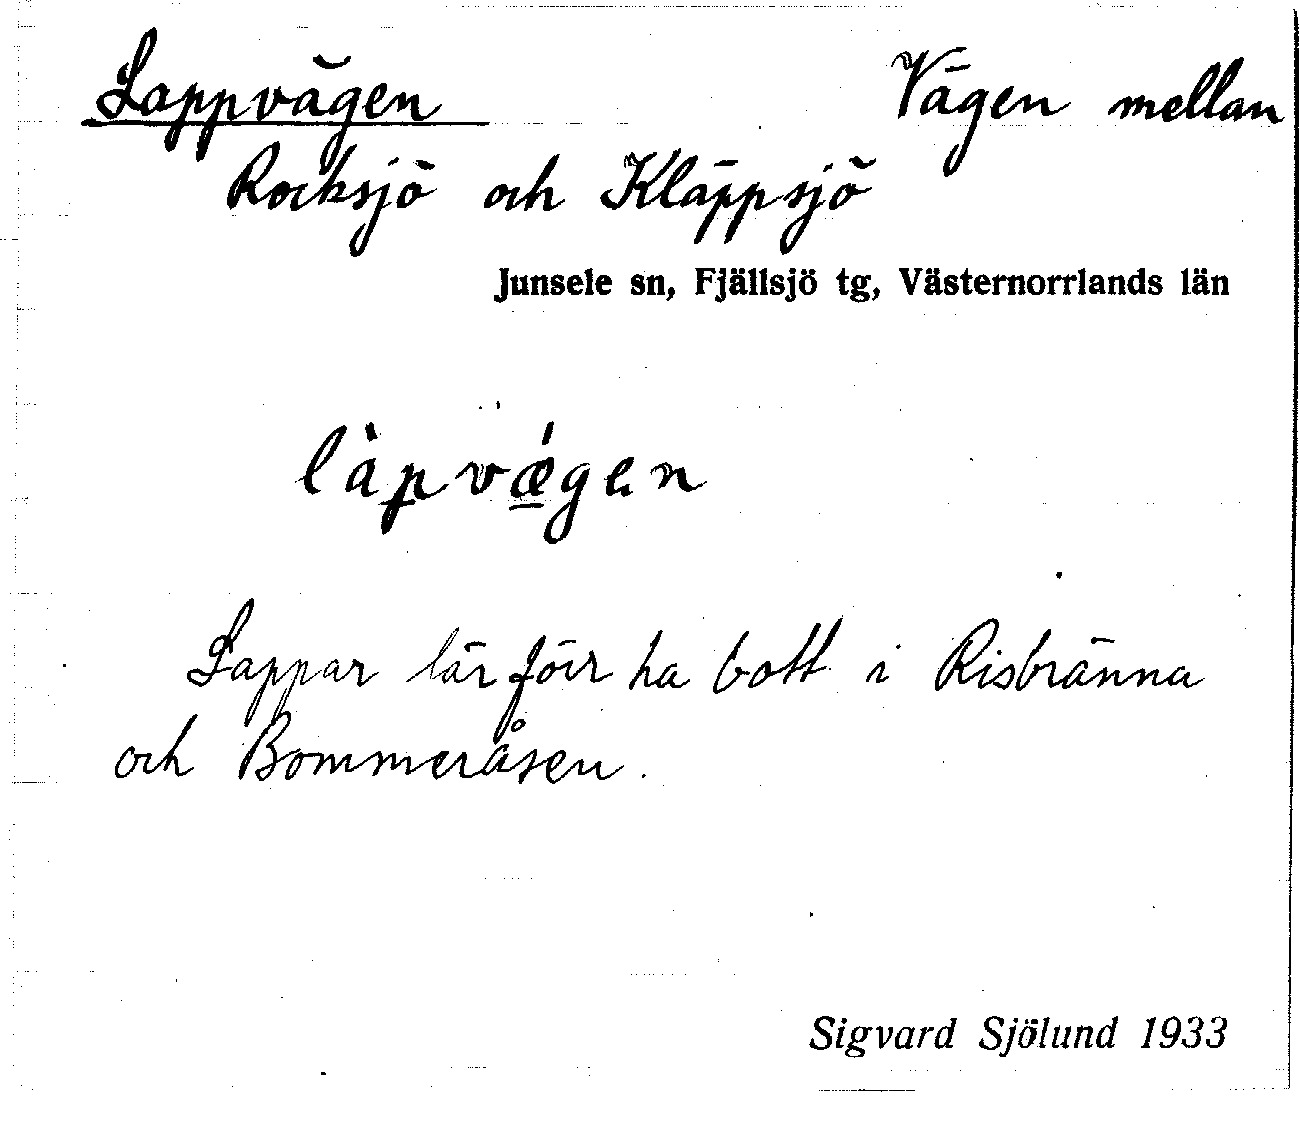 Lappvägen Vägen mellan
Rocksjö och Kläppsjö
Junsele sn, Fjällsjö tg, Västernorrlands län
làpvǽ̱gen
Lappar lär förr ha bott i Risbränna
och Bommeråsen.
Sigvard Sjölund 1933